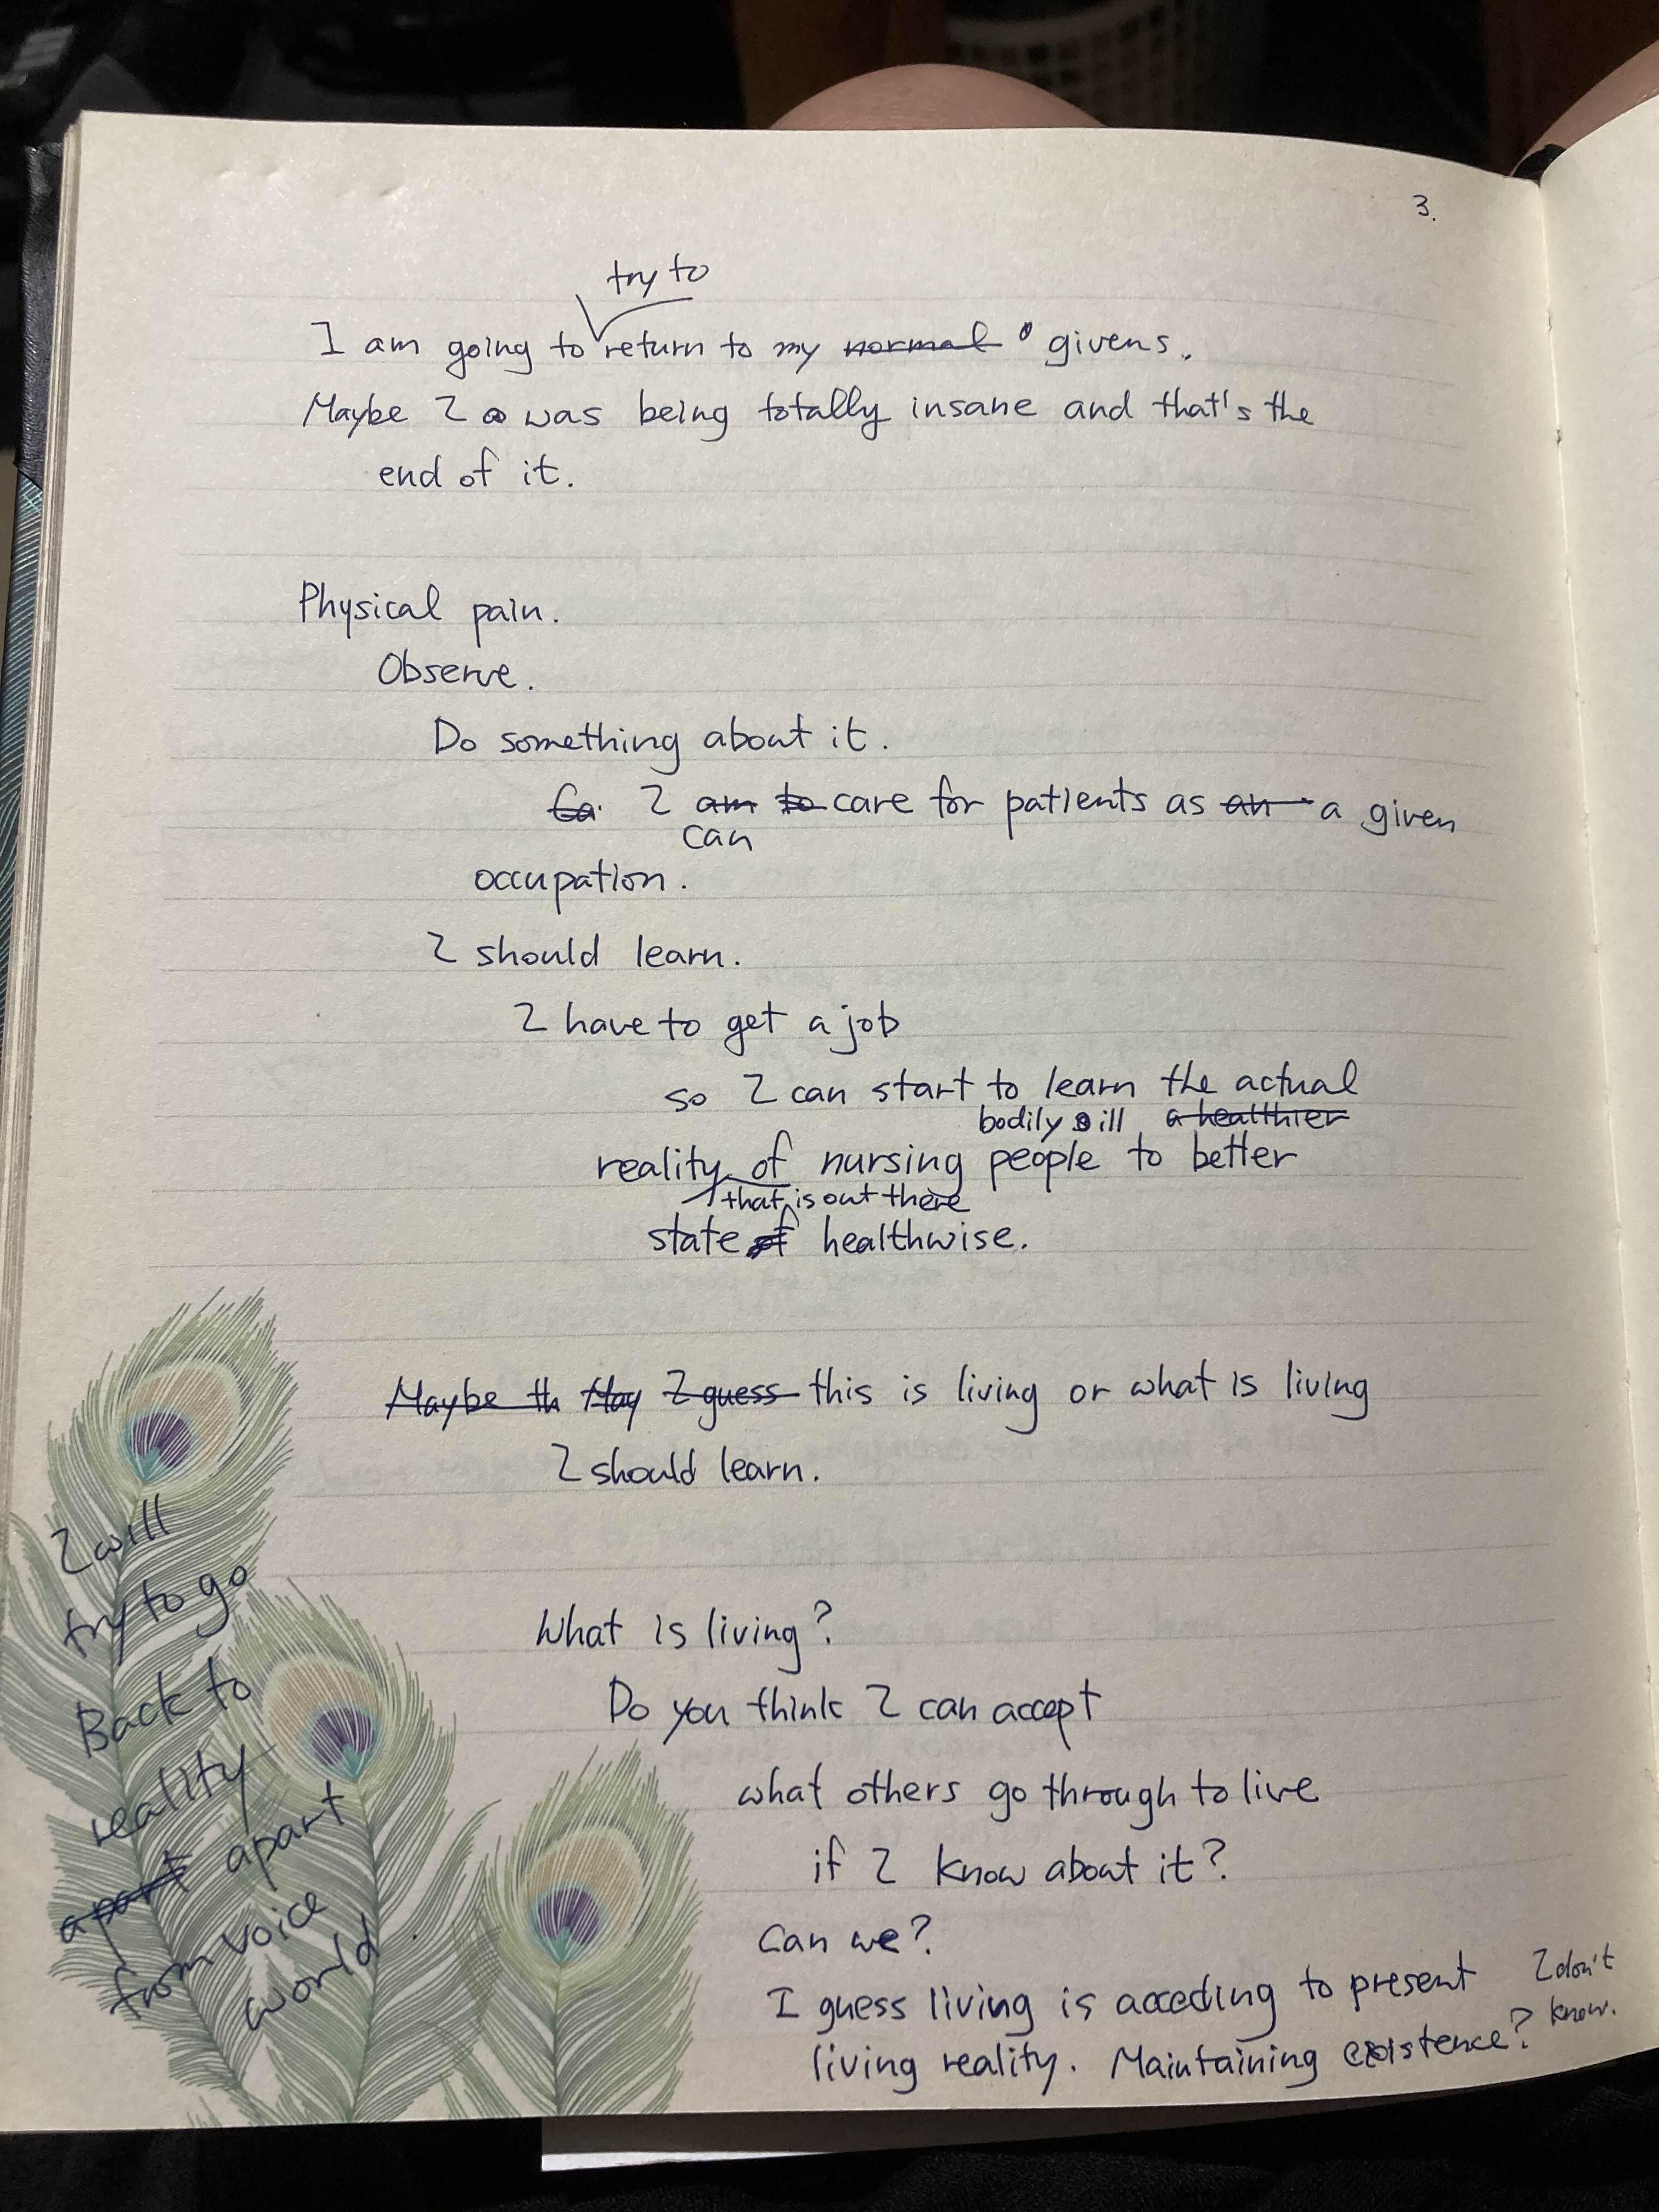 3.
try to
I am going to return to my normal givens.
Maybe I was being totally insane and that's the
end of it.
Physical pain.
Observe.
Do something about it.
I am to care for patients as an a given
can
occupation.
I should learn.
I have to get a job
so I can start to learn the actual
bodily ill a healthier
reality of nursing people to better
that is out there
state of healthwise.
Maybe th May I guess this is living or what is living
I should learn.
What is living?
Do you think I can accept
what others go through to live
if I know about it?
Can we?
I guess living is acceding to present
living reality. Maintaining existence?
I don't
know.
I will
try to go
Back to
reality
apart apart
from voice
world.